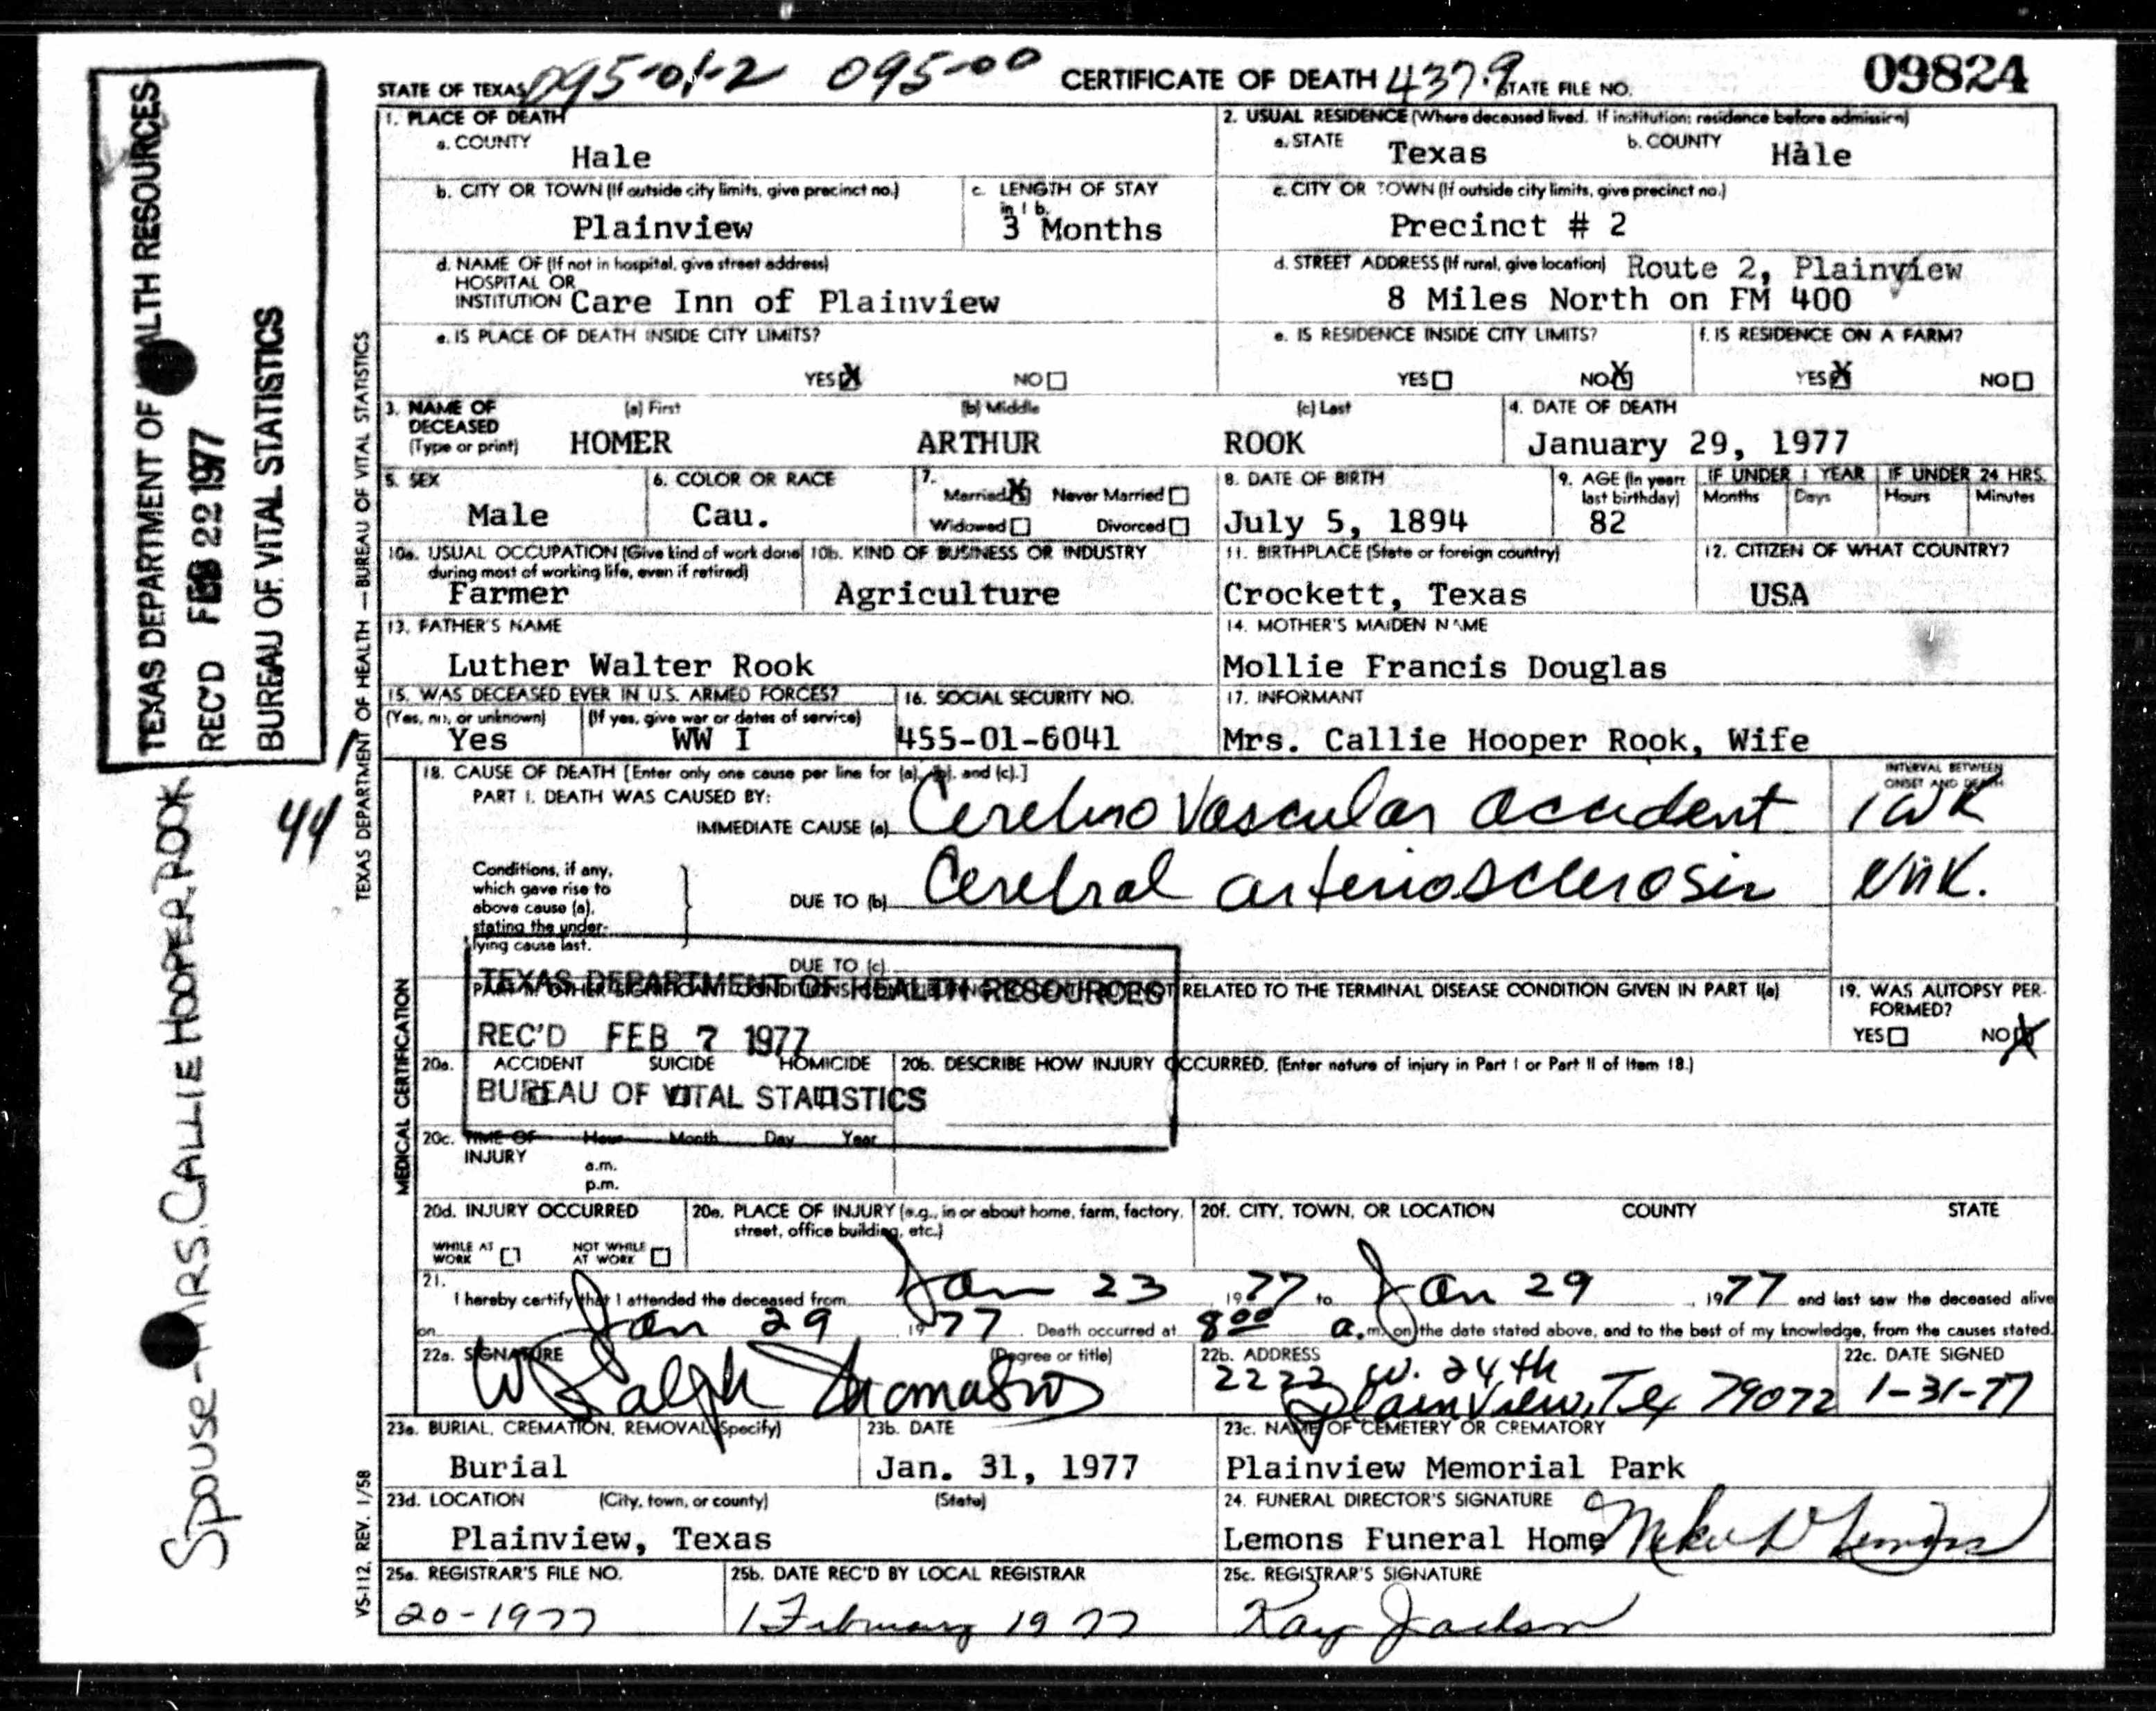 STATE OF TEXAS 095-01-2 095-00 CERTIFICATE OF DEATH 437.9 STATE FILE NO. 09824
1. PLACE OF DEATH
a. COUNTY Hale
2. USUAL RESIDENCE (Where deceased lived. If institution: residence before admission)
a. STATE Texas b. COUNTY Hale
b. CITY OR TOWN (If outside city limits, give precinct no.)
Plainview
c. LENGTH OF STAY
in 1 b.
3 Months
c. CITY OR TOWN (If outside city limits, give precinct no.)
Precinct # 2
d. NAME OF (If not in hospital, give street address)
HOSPITAL OR
INSTITUTION Care Inn of Plainview
d. STREET ADDRESS (If rural, give location) Route 2, Plainview
8 Miles North on FM 400
e. IS PLACE OF DEATH INSIDE CITY LIMITS?
YES X NO
e. IS RESIDENCE INSIDE CITY LIMITS?
YES NO X
f. IS RESIDENCE ON A FARM?
YES X NO
3. NAME OF
DECEASED
(Type or print)
(a) First (b) Middle (c) Last
HOMER ARTHUR ROOK
4. DATE OF DEATH
January 29, 1977
5. SEX
Male
6. COLOR OR RACE
Cau.
7.
Married X Never Married
Widowed Divorced
8. DATE OF BIRTH
July 5, 1894
9. AGE (In years
last birthday)
82
IF UNDER 1 YEAR IF UNDER 24 HRS.
Months Days Hours Minutes
10a. USUAL OCCUPATION (Give kind of work done
during most of working life, even if retired)
Farmer
10b. KIND OF BUSINESS OR INDUSTRY
Agriculture
11. BIRTHPLACE (State or foreign country)
Crockett, Texas
12. CITIZEN OF WHAT COUNTRY?
USA
13. FATHER'S NAME
Luther Walter Rook
14. MOTHER'S MAIDEN NAME
Mollie Francis Douglas
15. WAS DECEASED EVER IN U.S. ARMED FORCES?
(Yes, no, or unknown) (If yes, give war or dates of service)
Yes WW I
16. SOCIAL SECURITY NO.
455-01-6041
17. INFORMANT
Mrs. Callie Hooper Rook, Wife
18. CAUSE OF DEATH [Enter only one cause per line for (a), (b), and (c).]
PART I. DEATH WAS CAUSED BY:
IMMEDIATE CAUSE (a) Cerebro Vascular accident
INTERVAL BETWEEN
ONSET AND DEATH
1 wk
Conditions, if any,
which gave rise to
above cause (a),
stating the under-
lying cause last.
DUE TO (b) Cerebral arteriosclerosis
unk.
DUE TO (c)
PART II. OTHER SIGNIFICANT CONDITIONS NOT RELATED TO THE TERMINAL DISEASE CONDITION GIVEN IN PART I(a)
TEXAS DEPARTMENT OF HEALTH RESOURCES
REC'D FEB 7 1977
BUREAU OF VITAL STATISTICS
19. WAS AUTOPSY PER-
FORMED?
YES NO X
20a. ACCIDENT SUICIDE HOMICIDE
20b. DESCRIBE HOW INJURY OCCURRED. (Enter nature of injury in Part I or Part II of Item 18.)
20c. TIME OF Hour Month Day Year
INJURY
a.m.
p.m.
20d. INJURY OCCURRED
WHILE AT
WORK
NOT WHILE
AT WORK
20e. PLACE OF INJURY (e.g., in or about home, farm, factory,
street, office building, etc.)
20f. CITY, TOWN, OR LOCATION COUNTY STATE
21.
I hereby certify that I attended the deceased from Jan 23 1977 to Jan 29, 1977 and last saw the deceased alive
on Jan 29 1977. Death occurred at 8 00 a.m. on the date stated above, and to the best of my knowledge, from the causes stated.
22a. SIGNATURE (Degree or title)
W Ralph
22b. ADDRESS
2222 W. 24th
Plainview, Tex 79072
22c. DATE SIGNED
1-31-77
23a. BURIAL, CREMATION, REMOVAL (Specify)
Burial
23b. DATE
Jan. 31, 1977
23c. NAME OF CEMETERY OR CREMATORY
Plainview Memorial Park
23d. LOCATION (City, town, or county) (State)
Plainview, Texas
24. FUNERAL DIRECTOR'S SIGNATURE
Lemons Funeral Home
25a. REGISTRAR'S FILE NO.
20-1977
25b. DATE REC'D BY LOCAL REGISTRAR
1 February 1977
25c. REGISTRAR'S SIGNATURE
Kay Jackson
TEXAS DEPARTMENT OF HEALTH RESOURCES
REC'D FEB 22 1977
BUREAU OF VITAL STATISTICS
44
Spouse-MRS. CALLIE HOOPER ROOK
TEXAS DEPARTMENT OF HEALTH — BUREAU OF VITAL STATISTICS
MEDICAL CERTIFICATION
VS-112, REV. 1/58